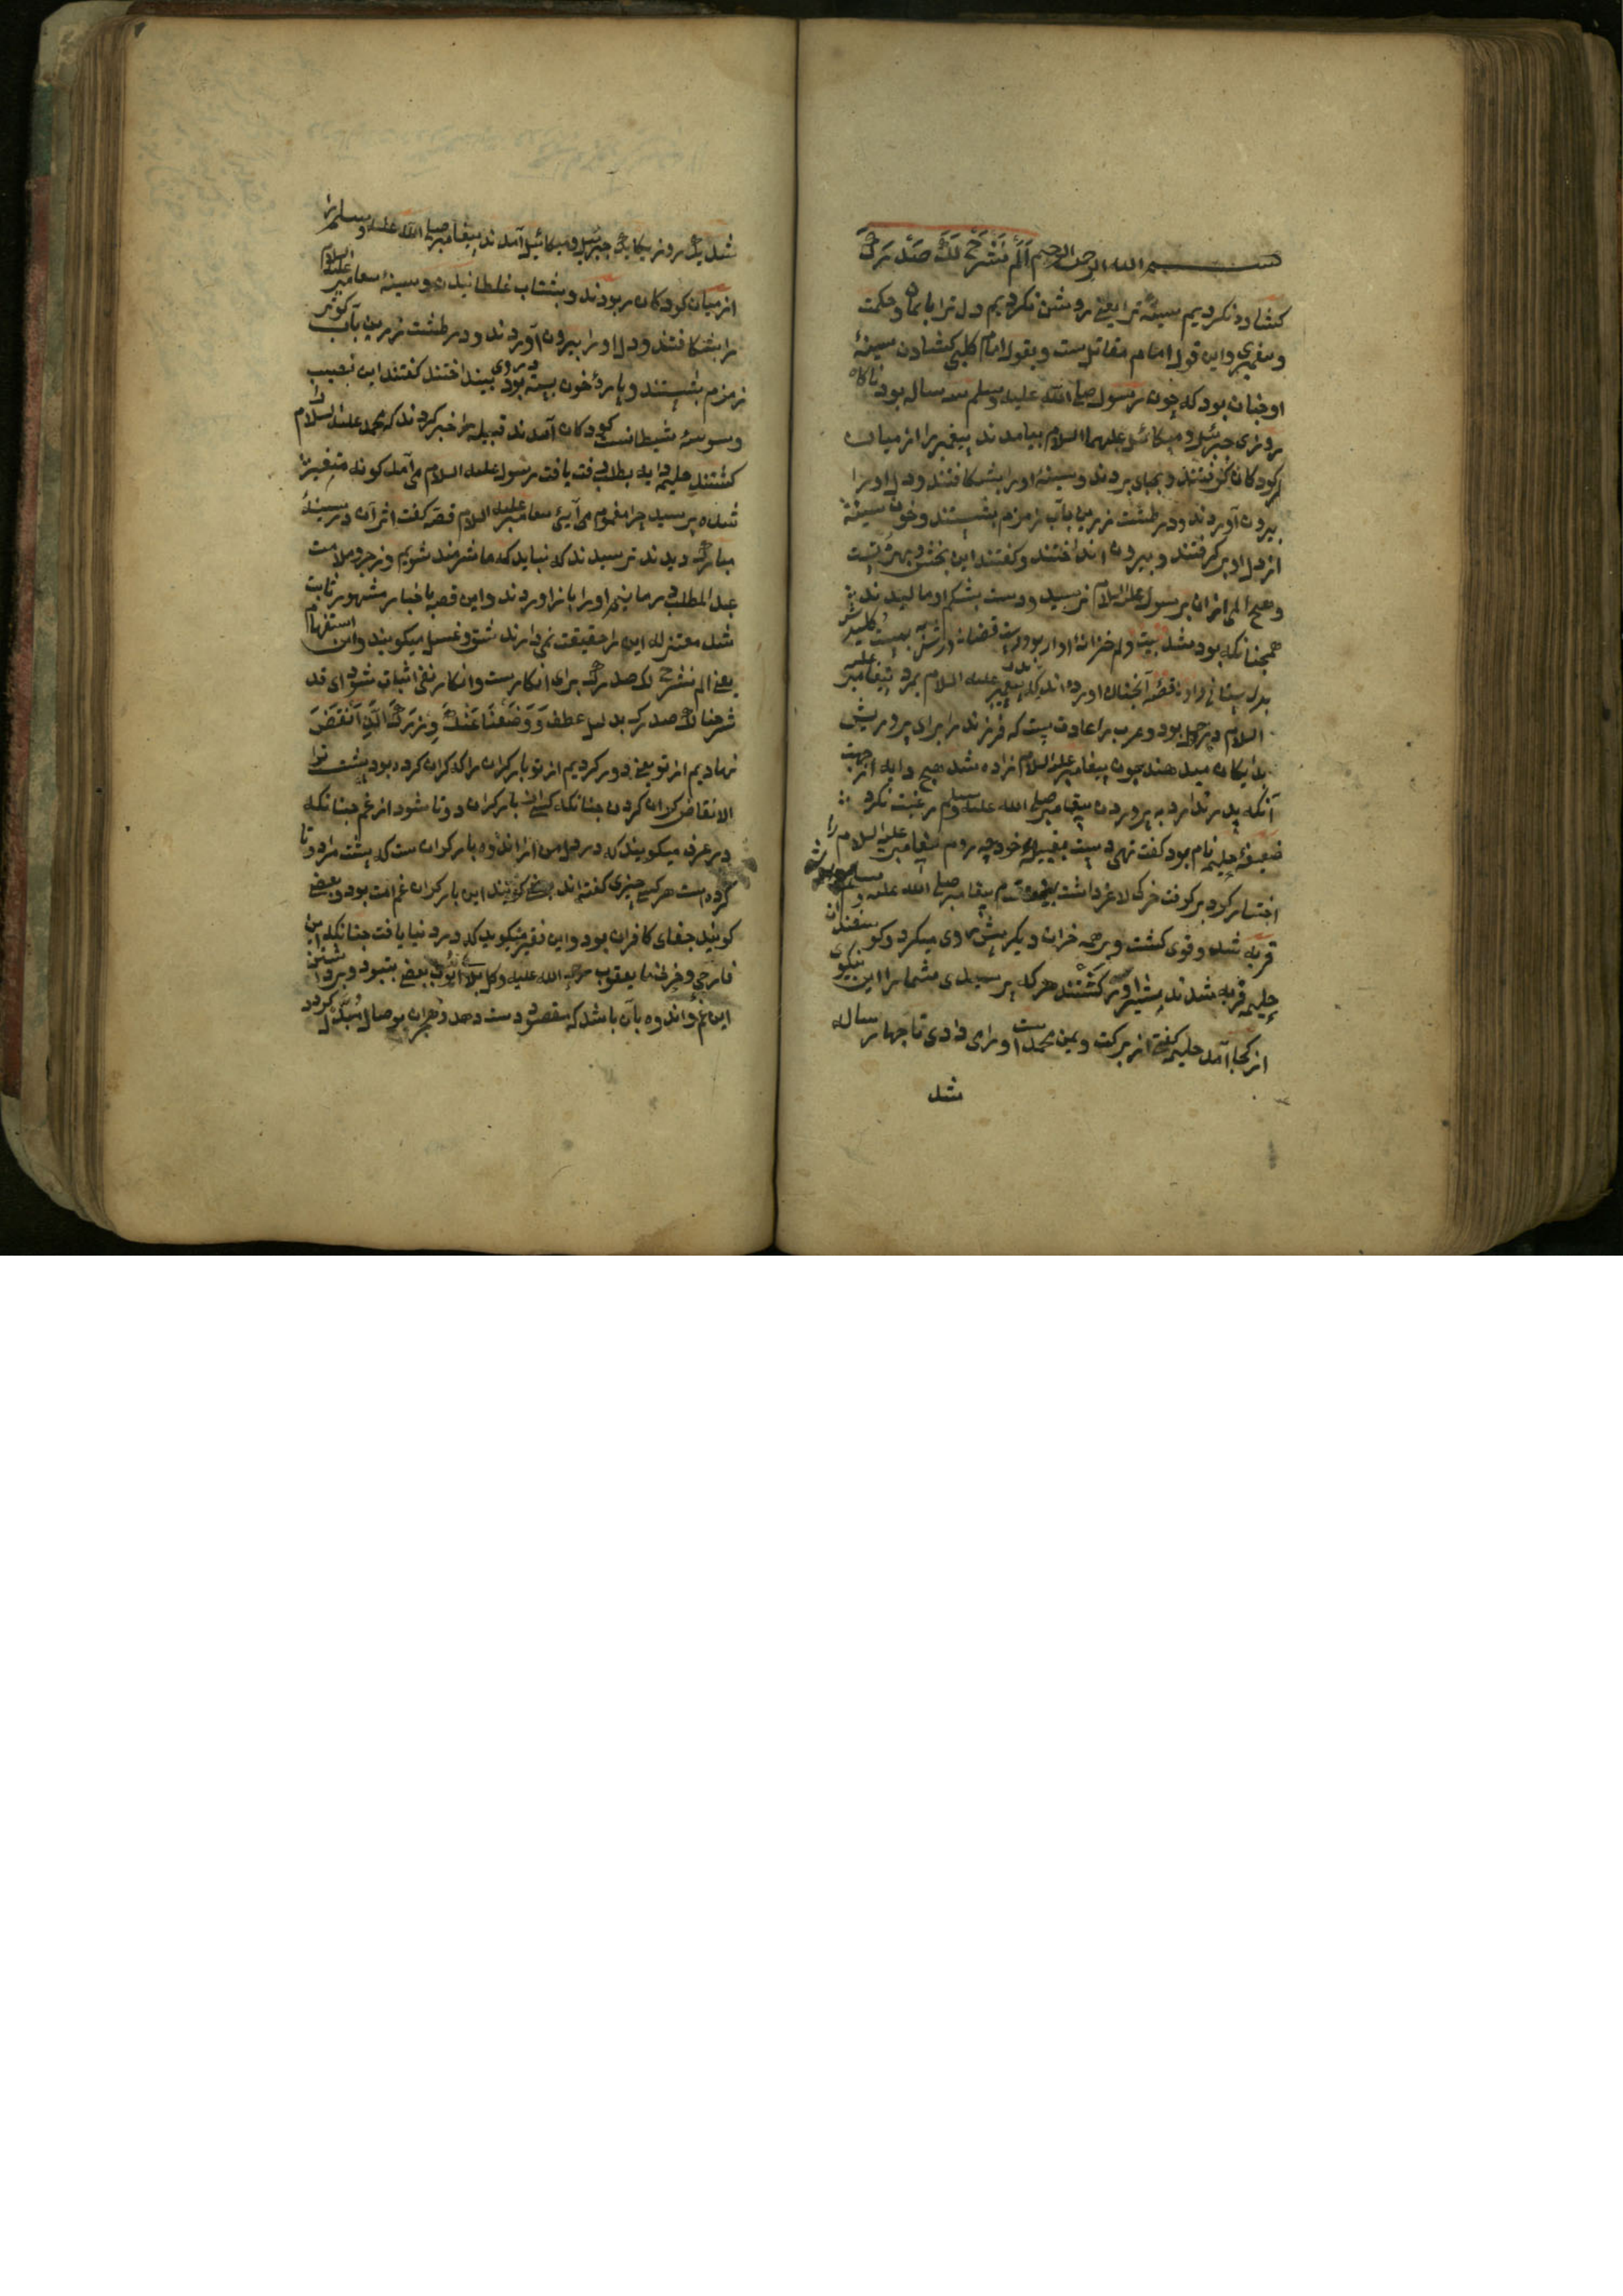 بسم الله الرحمن الرحیم اَلَمْ نَشْرَحْ لَکَ صَدْرَکَ
کشاده نکردیم سینهٔ ترا یعنی روشن نکردیم دل ترا بایمان و حکمت
و پیغمبری و این قول امام مقاتل ست و بقول امام کلبی کشادن سینهٔ
او جنان بود که جون رسول صلی الله علیه وسلم سه ساله بود ناکاه
روزی جبرئیل و میکائیل علیهما السلام بیامدند پیغمبر را از میان
کودکان کرفتند و بجای بردند و سینهٔ او را بشکافتند و دل او را
بیرون آوردند و در طشت زرین بآب زمزم بشستند و خون سینهٔ
از دل او بر کرفتند و بیرون انداختند و کفتند این بخش و بهرهٔ تست
و هیج المی ازان برسول علیه السلام نرسید و دست بشکم او مالیدند
همجنانکه بود بشد
بدل قصهٔ آنجنان اورده اند که پدر پیغمبر علیه السلام بمرد پیغامبر علیه
السلام در حمل بود و عرب را عادت ست که فرزند را برای پرورش
بدایکان میدهند جون پیغامبر علیه السلام زاده شد هیج دایه از جهت
آنکه پدر ندارد به پروردن پیغامبر صلی الله علیه وسلم رغبت نکرد
ضعیفهٔ حلیمه نام بود کفت تهی دست بقبیلهٔ خود جه روم پیغامبر علیه السلام را
اختیار کرد بر کرفت خرکی لاغر داشت پیغامبر صلی الله علیه وسلم
فربه شد و قوی کشت و بر همه خران دیکر پیش روی میکرد و کوسفندان
حلیمه فربه شدند شیر آور کشتند هر که پرسیدی شما را این نیکوی
از کجا آمد حلیمه کفتی از برکت و یمن محمد ست او را می دادی تا جهار ساله
شد
شد یک روز یکایک جبرئیل و میکائیل آمدند پیغامبر صلی الله علیه وسلم را
از میان کودکان ربودند و بشتاب غلطانیدن و سینهٔ پیغامبر علیه السلام
را بشکافتند و دل او را بیرون آوردند و در طشت زرین بآب کوثر
زمزم بشستند و پارهٔ خون بسته بود در وی بینداختند کفتند این نصیب
وسوسهٔ شیطانست کودکان آمدند قبیله را خبر کردند که محمد علیه السلام را
کشتند حلیمه دایه بطلب رفت یافت رسول علیه السلام می آمد کونه متغیر
شده پرسید جرا مغموم می آیئ پیغامبر علیه السلام قصه کفت اثر آن در سینهٔ
مبارک دیدند ترسیدند که نباید که ما شرمند شویم و زجر و ملامت
عبد المطلب در مانیم او را باز اوردند و این قصه باخبار مشهور ثابت
شد معتزله این را حقیقت نمی دارند شق و غسل میکویند و این استفهام
یعنی الم نشرح لک صدرک برای انکارست و انکار نفی اثبات شود ای قد
شرحنا لک صدرک بدلیل عطف وَوَضَعْنَا عَنْکَ وِزْرَکَ الَّذِی اَنْقَضَ
نهادیم از تو یعنی دور کردیم از تو بار کران را که کران کرده بود پشت ترا
الانقاض کران کردن جنانکه کسی از بار کران دوتا شود از غم جنانکه
در عرف میکویند که در دل من ازاندوه بار کران ست که پشت مرا دوتا
کرده است هر کسی جیزی کفته اند بعضی کویند این بار کران غم امت بود و بعضی
کویند جفای کافران بود و این فقیر میکوید که درد نیایافت جنانکه این
اللٰه علیه و کل بلاء ایوب بعض
این غم و اندوه بآن باشد که مقصود دست دهد و هجران بوصال مبدل کردد